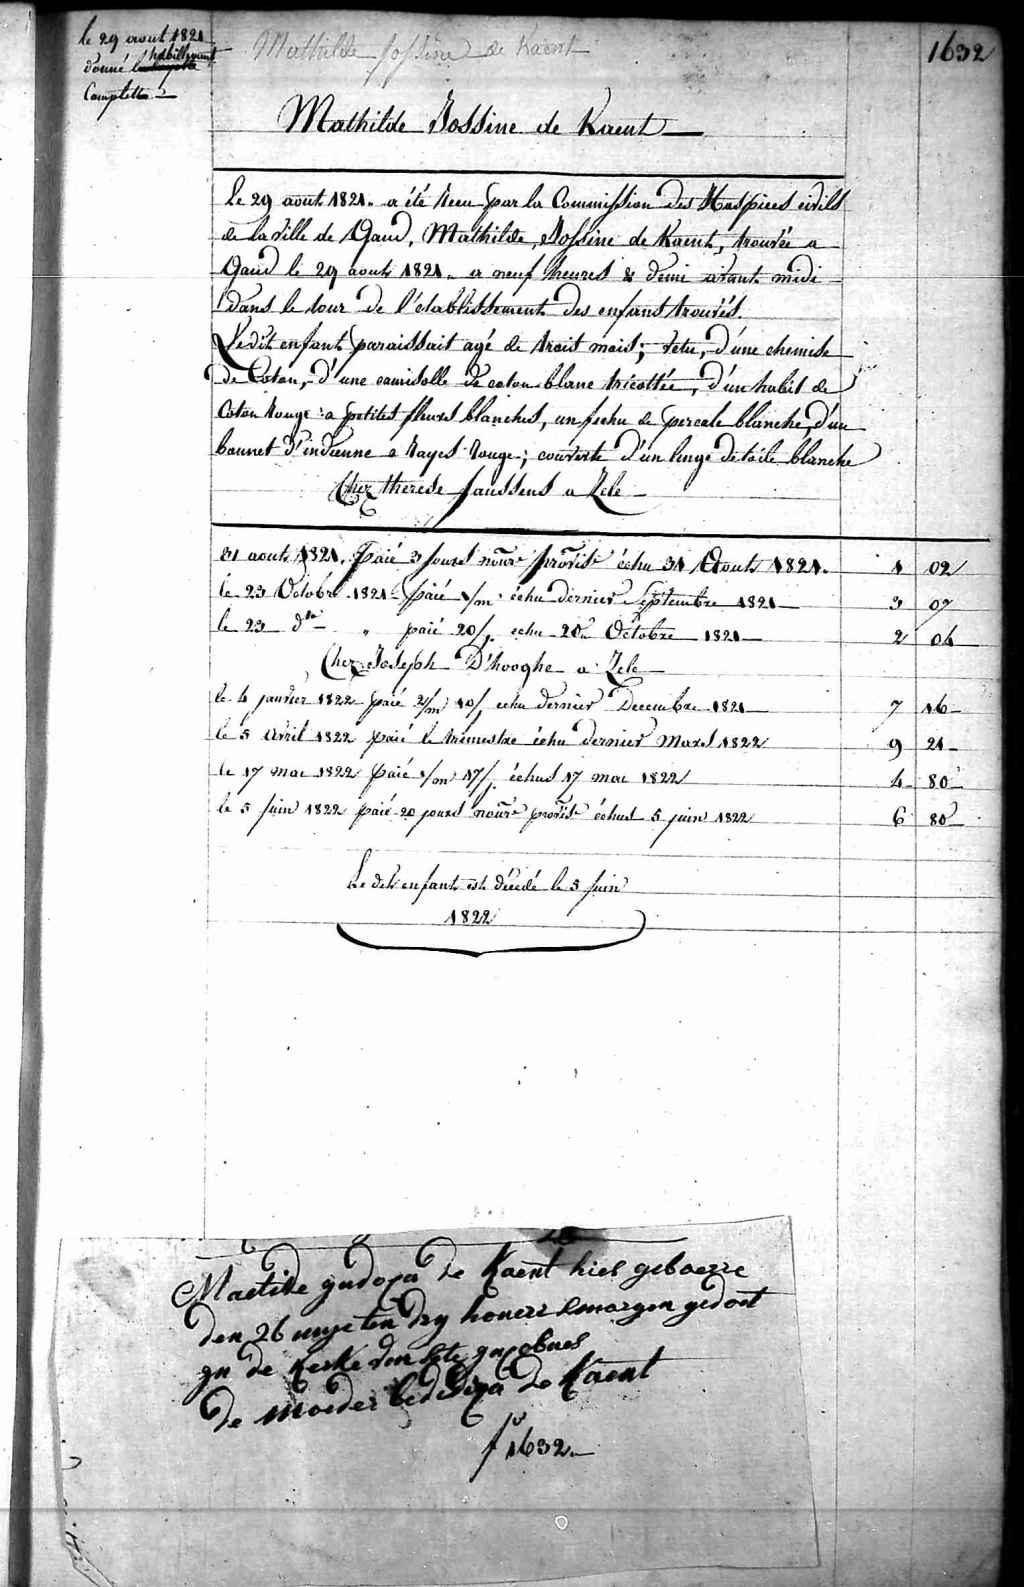 le 29 aout 1821
donné l'habillement
Complette
1632
Mathilde Jossine de Kaent
Mathilde Jossine de Kaent
Le 29 aout 1821. a été recu par la Commission des Hospices civils
de la ville de Gand, Mathilde, Jossine de Kaent, trouvée a
Gand le 29 aout 1821. a neuf heures & demi avant midi
dans le tour de l'etablissement des enfans trouvés.
Ledit enfant paraissait agé de troit mois; vetu, d'une chemise
de Coton, d'une camisolle de coton blanc tricottée, d'un habit de
Coton Rouge a petites fleurs blanches, un fichu de percale blanche, d'un
bonnet d'indienne a Rayes Rouge; couverte d'un linge de toile blanche
Chez therese Janssens a Zele
31 aout 1821. Paié 3 jours nourre provise échu 31 Aout 1821. 1 02
le 23 Octobre 1821 Paié 1/m échu dernier Septembre 1821 3 07
le 23 do " paié 20/j echu 20 Octobre 1821 2 06
Chez Joseph D'hooghe a Zele
le 4 janvier 1822 paié 2/m 10/j echu dernier Decembre 1821 7 16
le 5 Avril 1822 paié le trimestre échu dernier Mars 1822 9 21
le 17 mai 1822 paié 1/m 17/j échus 17 mai 1822 4 80
le 5 Juin 1822 paié 20 jours nourre provise échus 5 juin 1822 6 80
Le dit enfant est décédé le 5 Juin
1822
Maetilde gudoca de Kaent hier geboerre
den 26 mye ten dry houere smorgen gedoet
gn de kerke van
de Moeder de Kaent
f 1632.